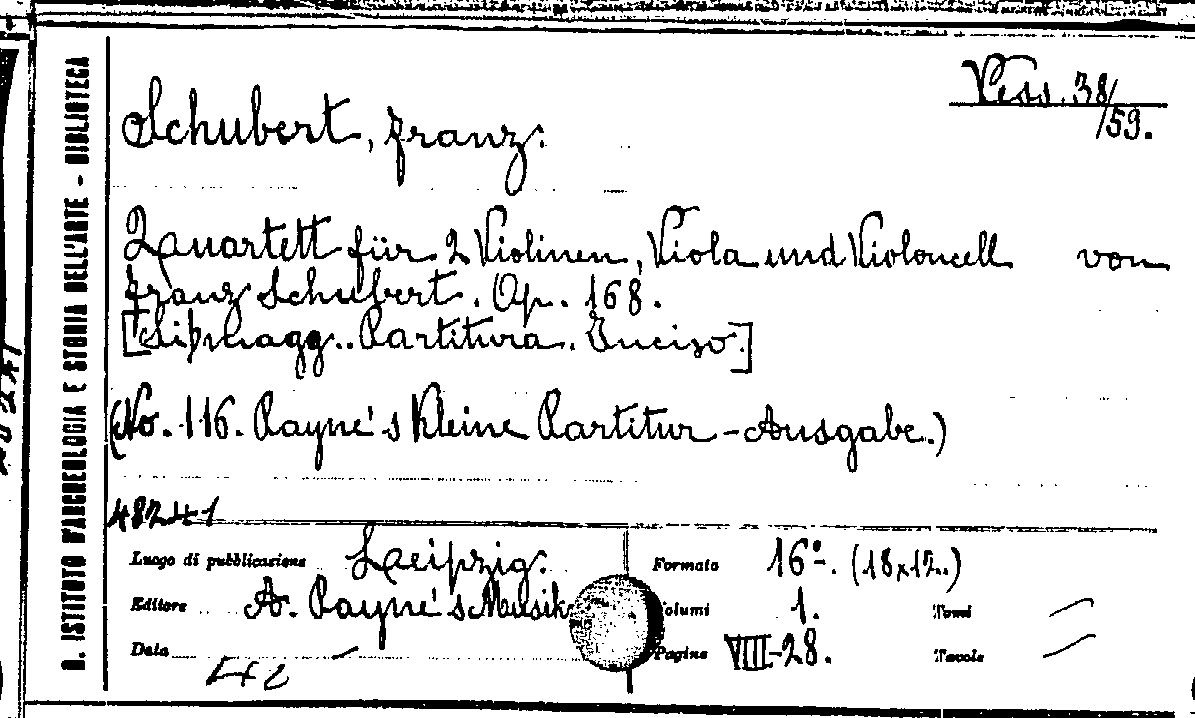 R. ISTITUTO D'ARCHEOLOGIA E STORIA DELL'ARTE - BIBLIOTECA
Vess. 38/
/59.
Schubert, Franz.
Quartett für 2 Violinen, Viola und Violoncell von
Franz Schubert. Op. 168.
[Si♭ magg.. Partitura. Inciso.]
(No. 116. Payne's Kleine Partitur-Ausgabe.)
48241
Luogo di pubblicazione Leipzig.
Formato 16º. (18x12..)
Editore A. Payne's Musik
Volumi 1. Tomi
Data
Pagine VIII-28. Tavole